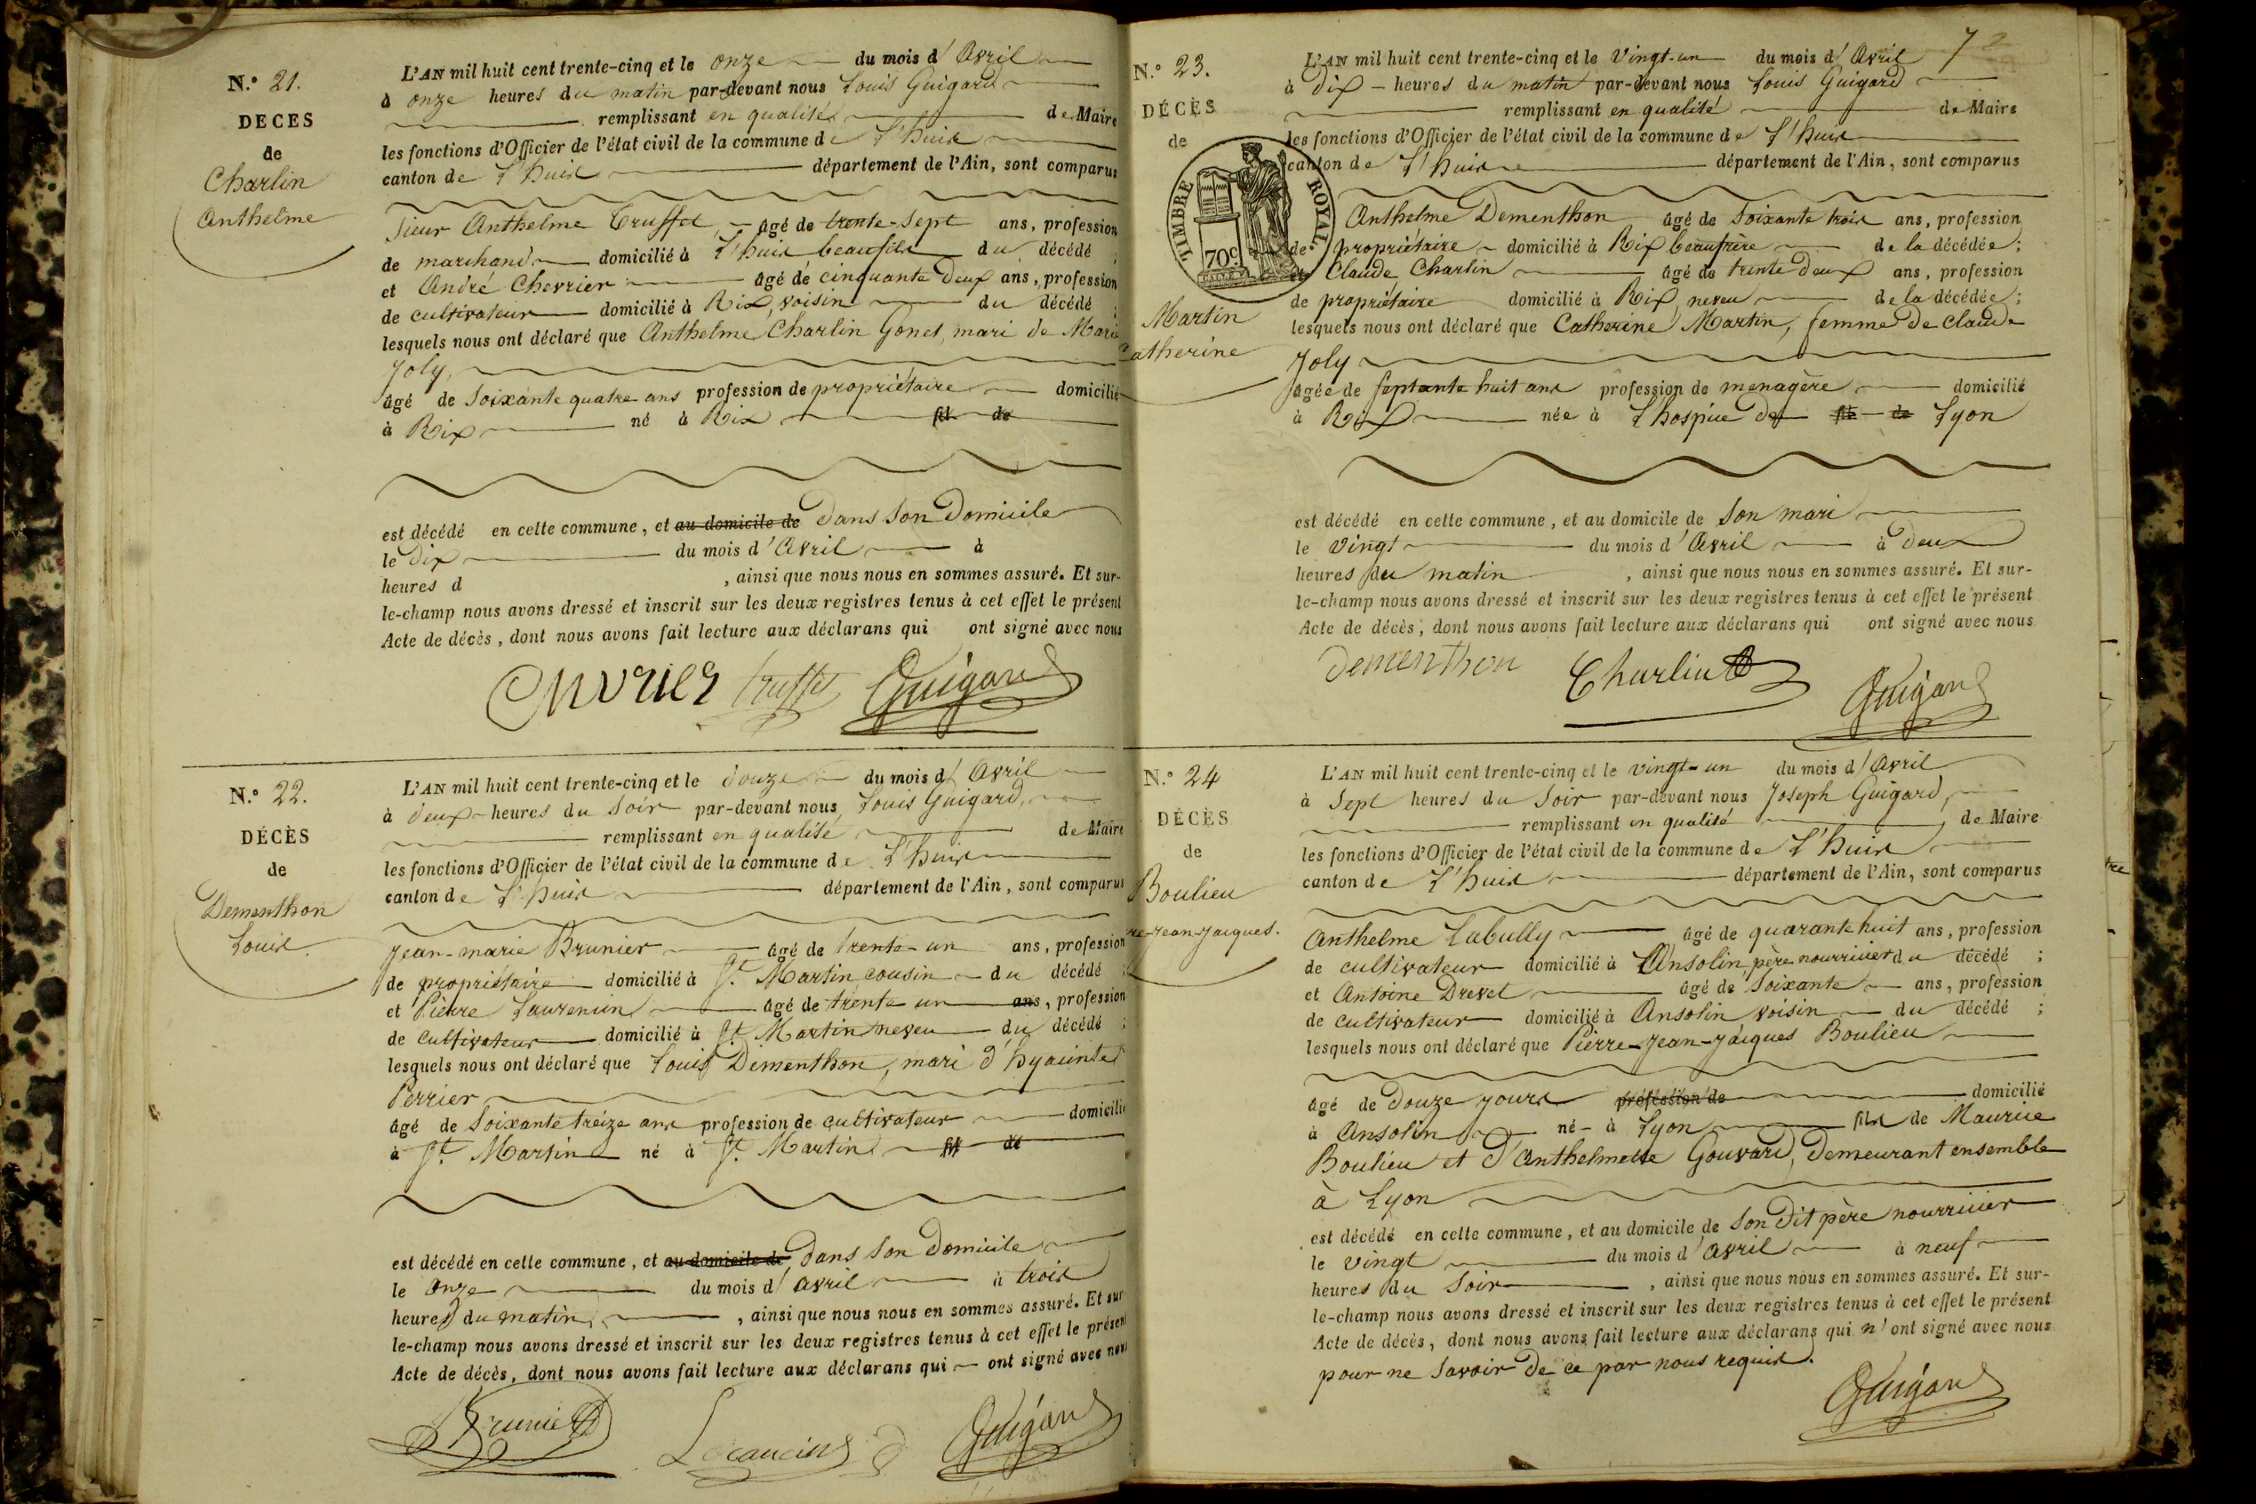 N.º 21.
DECES
de
Charlin
Anthelme
L'AN mil huit cent trente-cinq et le onze du mois d'Avril
à onze heures du matin par-devant nous Louis Guigard
remplissant en qualité de Maire
les fonctions d'Officier de l'état civil de la commune de L'huis
canton de L'huis département de l'Ain, sont comparus
Sieur Anthelme Truffet, âgé de trente-sept ans, profession
de marchand domicilié à L'huis beaufils du décédé ;
et André Chevrier âgé de cinquante deux ans, profession
de cultivateur domicilié à Rix, voisin du décédé ;
lesquels nous ont déclaré que Anthelme Charlin Gonet, mari de Marie
Joly,
âgé de soixante quatre ans profession de propriétaire domicilié
à Rix né à Rix fil de
est décédé en cette commune, et au domicile de Dans son Domicile
le dix du mois d'Avril à
heures d , ainsi que nous nous en sommes assuré. Et sur-
le-champ nous avons dressé et inscrit sur les deux registres tenus à cet effet le présent
Acte de décès, dont nous avons fait lecture aux déclarans qui ont signé avec nous
Chevrier truffet Guigard
N.º 22.
DÉCÈS
de
Dementhon
Louis.
L'AN mil huit cent trente-cinq et le douze du mois d'Avril
à deux heures du soir par-devant nous Louis Guigard,
remplissant en qualité de Maire
les fonctions d'Officier de l'état civil de la commune de L'huis
canton de L'huis département de l'Ain, sont comparus
Jean-marie Brunier âgé de trente-un ans, profession
de propriétaire domicilié à St. Martin cousin du décédé ;
et Pierre Laurencin âgé de trente un ans, profession
de cultivateur domicilié à St. Martin neveu du décédé ;
lesquels nous ont déclaré que Louis Dementhon, mari d'hyacinte
Perrier
âgé de soixante treize ans profession de cultivateur domicilié
à St. Martin né à St. Martin fil de
est décédé en cette commune, et au domicile de Dans son Domicile
le onze du mois d'avril à trois
heures du matin, , ainsi que nous nous en sommes assuré. Et sur
le-champ nous avons dressé et inscrit sur les deux registres tenus à cet effet le présent
Acte de décès, dont nous avons fait lecture aux déclarans qui ont signé avec nous
Brunier Guigard
72
N.º 23.
DÉCÈS
de
TIMBRE ROYAL.
70c
Martin
Catherine
L'AN mil huit cent trente-cinq et le vingt-un du mois d'Avril
à dix heures du matin par-devant nous Louis Guigard
remplissant en qualité de Maire
les fonctions d'Officier de l'état civil de la commune de L'huis
canton de L'huis département de l'Ain, sont comparus
Anthelme Dementhon âgé de soixante trois ans, profession
de propriétaire domicilié à Rix beaufrère de la décédée ;
et Claude Charlin âgé de trente deux ans, profession
de propriétaire domicilié à Rix, neveu de la décédée ;
lesquels nous ont déclaré que Catherine Martin, femme de Claude
Joly
âgée de septante huit ans profession de menagère domicilié
à Rix née à L'hospice de fil de Lyon
est décédé en cette commune, et au domicile de son mari
le vingt du mois d'Avril à deux
heures du matin , ainsi que nous nous en sommes assuré. Et sur-
le-champ nous avons dressé et inscrit sur les deux registres tenus à cet effet le présent
Acte de décès, dont nous avons fait lecture aux déclarans qui ont signé avec nous
Dementhon Charlin Guigard
N.º 24
DÉCÈS
de
Boulieu
re-Jean-Jacques.
L'AN mil huit cent trente-cinq et le vingt-un du mois d'Avril
à sept heures du soir par-devant nous Joseph Guigard,
remplissant en qualité de Maire
les fonctions d'Officier de l'état civil de la commune de L'huis
canton de L'huis département de l'Ain, sont comparus
Anthelme Labully âgé de quarante huit ans, profession
de cultivateur domicilié à Ansolin, père nourricier du décédé ;
et Antoine Drevet âgé de soixante ans, profession
de cultivateur domicilié à Ansolin voisin du décédé ;
lesquels nous ont déclaré que Pierre-Jean-Jacques Boulieu
âgé de Douze jours profession de domicilié
à Ansolin né à Lyon fils de Maurice
Boulieu et D'Anthelmette Gouvard, Demeurant ensemble
à Lyon
est décédé en cette commune, et au domicile de son Dit père nourricier
le vingt du mois d'avril à neuf
heures du soir , ainsi que nous nous en sommes assuré. Et sur-
le-champ nous avons dressé et inscrit sur les deux registres tenus à cet effet le présent
Acte de décès, dont nous avons fait lecture aux déclarans qui n'ont signé avec nous
pour ne savoir de ce par nous requis.
Guigard